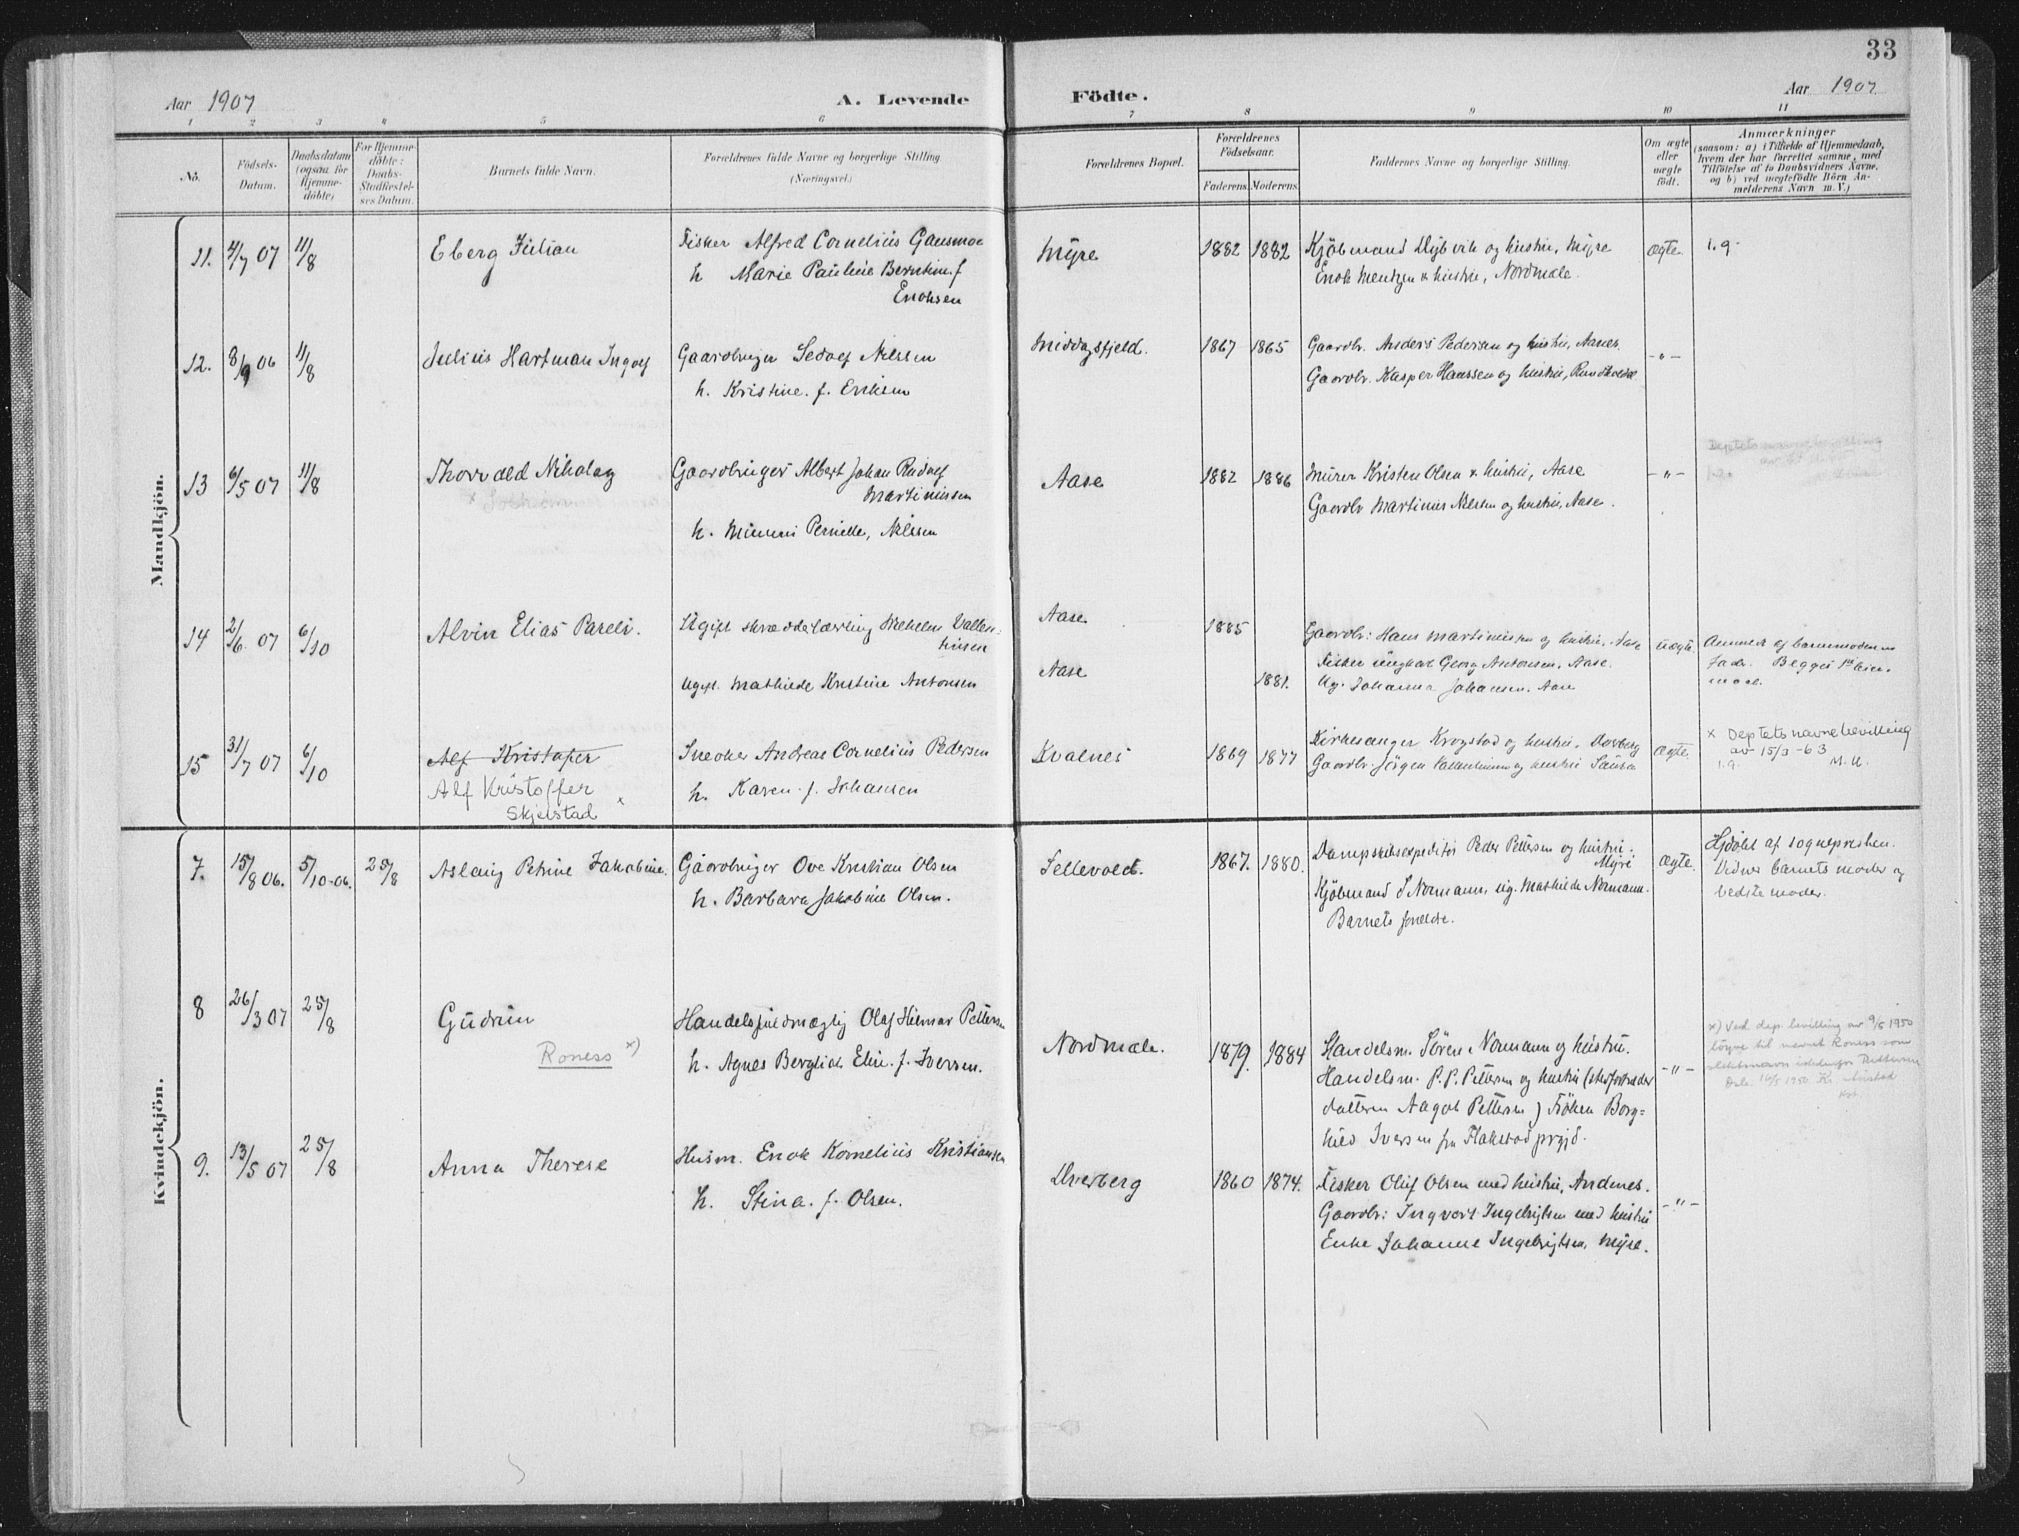 33
Aar 1907
A. Levende Födte.
Aar 1907
1 2 3 4 5 6 7 8 9 10 11
No.
Födsels-
Datum.
Daabsdatum
(ogsaa for
Hjemme-
döbte)
For Hjemme-
döbte:
Daabs-
Stadfæstel-
ses Datum.
Barnets fulde Navn.
Forældrenes fulde Navne og borgerlige Stilling.
(Næringsvei.)
Forældrenes Bopæl.
Forældrenes
Födselsaar.
Faderens. Moderens.
Faddernes Navne og borgerlige Stilling.
Om ægte
eller
uægte
födt.
Anmærkninger
(saasom: a) i Tilfælde af Hjemmedaab,
hvem der har forrettet samme, med
Tilföielse af to Daabsvidners Navne,
og b) ved uægtefödte Börn An-
melderens Navn m. V.)
Mandkjön.
11. 4/7 07 11/8
Eberg Julian
Fisker Alfred Cornelius Gausmoe
h Marie Pauline Berntine f
Enoksen
Myre
1882 1882
Kjöbmand Dybvik og hustru, Myre
Enok Mentzen & hustru, Nordmæle.
ægte
1.9.
12. 8/9 06 11/8
Julius Hartman Ingolf
Gaardbruger Sedolf Nilssen
h. Kristine. f. Eriksen
Middagsfjeld.
1867 1865
Gaardbr. Anders Pedersen og hustru, Aanes.
Gaardbr. Kasper Hanssen og hustru,
- " -
13 6/5 07 11/8
Thorvald Nikolay
Gaardbruger Albert Johan Rudolf
Martinussen
h. Minni Pernille, Nilssen
Aase
1882 1886
Murer Kristen Olsen & hustru, Aase
Gaardbr Martinus Nilsen og hustru, Aase.
- " -
14 2/6. 07 6/10
Alvin Elias Pareli.
Ugift skrædderlærling Vilhelm Vallen-
tinsen
Ugift. Mathilde Kristine Antonsen
Aase
Aase
1885
1881.
Gaardbr: Hans Martinussen og hustru, Aase
Fisker ungkar Georg Antonsen, Aase.
Ug. Johanna Johansen. Aase
uægte
Anmeldt af barnemoderens
fader. Begges 1ste leier-
maal.
15 31/7 07 6/10
Alf Kristofer
Alf Kristoffer
Skjelstad x
Snedker Andreas Cornelius Pedersen
h. Karen. f. Johansen
Kvalnes
1869 1877
Kirkesanger Krogstad og hustru, Dverberg
Gaardbr. Jörgen Vallentinsen og hustru
ægte.
x Deptets navnebevilling
av 15/3-63
1.9. M.H.
Kvindekjön.
7. 15/8 06. 5/10-06. 25/8
Aslaug Petrine Jakobine.
Gaardbruger Ove Kristian Olsen
h. Barbara Jakobine Olsen.
Sellevold.
1867. 1880.
Dampskibsexpeditör Peder Pettersen og hustru.
Myre
Kjöbmand S Normann, ug. Mathilde Normann.
Barnets forældre.
ægte.
Hjdöbt af sognepresten.
Vidner barnets moder og
bedstemoder.
8 26/3 07 25/8
Gudrun
Roness x)
Handelsfuldmægtig Olaf Hilmar Pettersen
h. Agnes Bergliot Elin. f. Iversen.
Nordmæle.
1879. 1884
Handelsm. Sören Normann og hustru.
Handelsm. P. P. Pettersen og hustru (stedfortræder
datteren Aagot Pettersen) Fröken Borg-
hild Iversen fra Flakstad prgjd.
- " -
x) Ved dep. bevilling av 9/5 1950
9. 13/5 07 25/8
Anna Therese
Husm. Enok Kornelius Kristiansen
h. Stina. f. Olsen.
Dverberg
1860 1874.
Fisker Oluf Olsen med hustru, Andenes.
Gaardbr: Ingvart Ingebrigtsen med hustru
Enke Johanne Ingebrigtsen, Myre.
- " -